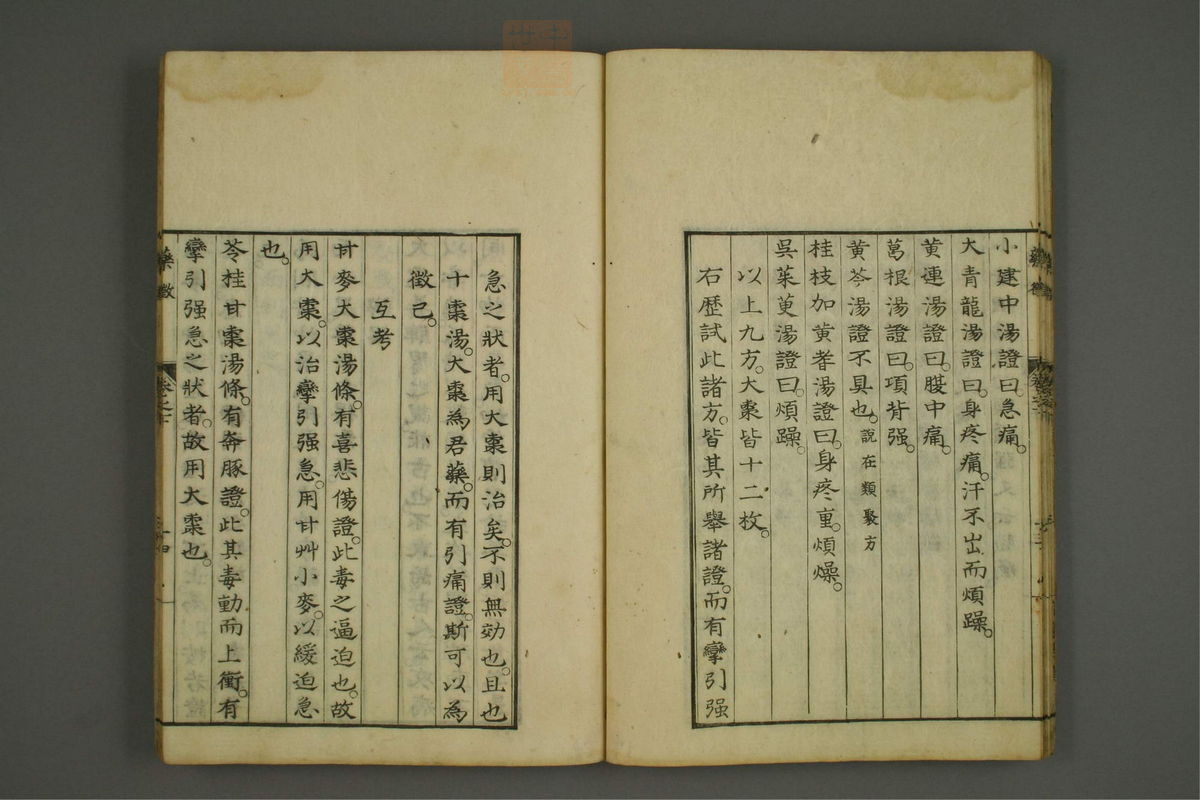 小建中湯證曰。急痛。
大青龍湯證曰。身疼痛。汗不出而煩躁。
黃連湯證曰。腹中痛。
葛根湯證曰。項背强。
黃芩湯證不具也。說在類聚方
桂枝加黃耆湯證曰。身疼重。煩燥。
吳茱萸湯證曰。煩躁。
以上九方。大棗皆十二枚。
右歷試此諸方。皆其所舉諸證。而有攣引强
急之狀者。用大棗則治矣。不則無効也。且也
十棗湯。大棗為君藥。而有引痛證。斯可以為
徵已。
互考
甘麥大棗湯條。有喜悲傷證。此毒之逼迫也。故
用大棗。以治攣引强急。用甘艸小麥。以緩迫急
也。
苓桂甘棗湯條。有奔豚證。此其毒動而上衝。有
攣引强急之狀者。故用大棗也。
藥徵